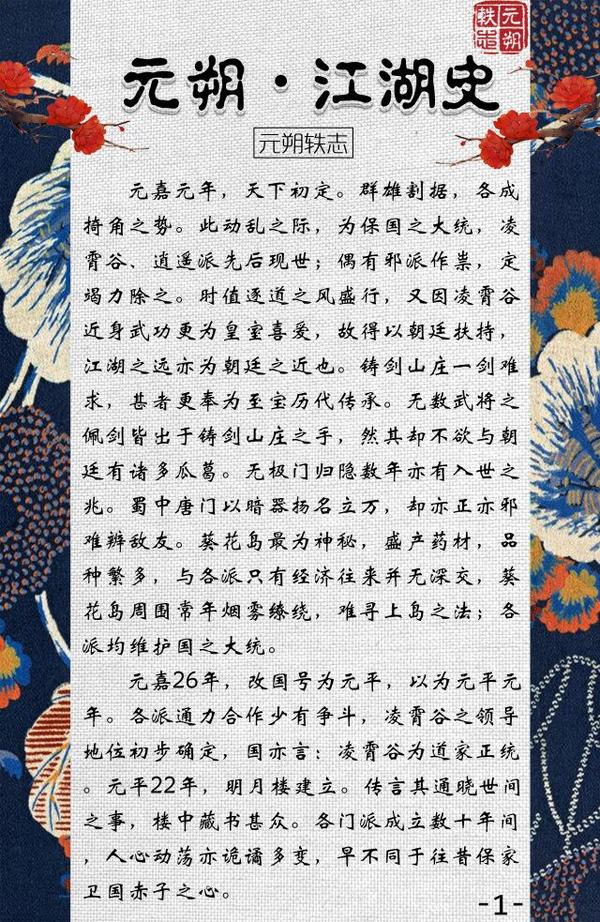 元朔
轶志
元朔·江湖史
元朔轶志
元嘉元年，天下初定。群雄割据，各成
掎角之势。此动乱之际，为保国之大统，凌
霄谷、逍遥派先后现世；偶有邪派作祟，定
竭力除之。时值逐道之风盛行，又因凌霄谷
近身武功更为皇室喜爱，故得以朝廷扶持，
江湖之远亦为朝廷之近也。铸剑山庄一剑难
求，甚者更奉为至宝历代传承。无数武将之
佩剑皆出于铸剑山庄之手，然其却不欲与朝
廷有诸多瓜葛。无极门归隐数年亦有入世之
兆。蜀中唐门以暗器扬名立万，却亦正亦邪
难辨敌友。葵花岛最为神秘，盛产药材，品
种繁多，与各派只有经济往来并无深交，葵
花岛周围常年烟雾缭绕，难寻上岛之法；各
派均维护国之大统。
元嘉26年，改国号为元平，以为元平元
年。各派通力合作少有争斗，凌霄谷之领导
地位初步确定，国亦言：凌霄谷为道家正统
。元平22年，明月楼建立。传言其通晓世间
之事，楼中藏书甚众。各门派成立数十年间
，人心动荡亦诡谲多变，早不同于往昔保家
卫国赤子之心。
-1-